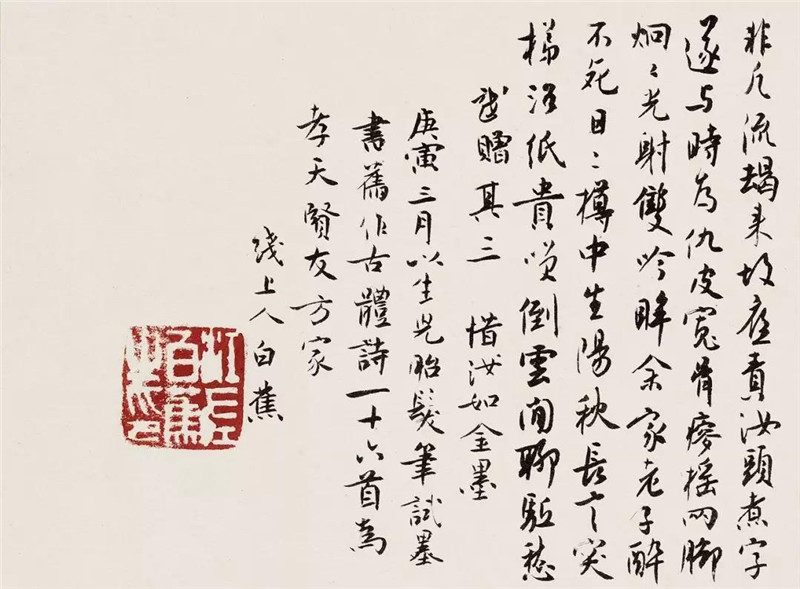 非凡流朅来故應責汝頭煮字
遂与時為仇皮寬骨瘳摇兩脚
炯〻光射雙吟眸余家老子醉
不死日〻樽中生陽秋長
紙貴嘆倒雲間聊駈愁
戲贈其三 惜汝如金墨
庚寅三月以生兒胎髮筆試墨
書舊作古體詩一十六首為
孝天賢友方家
綫上人白蕉
白蕉